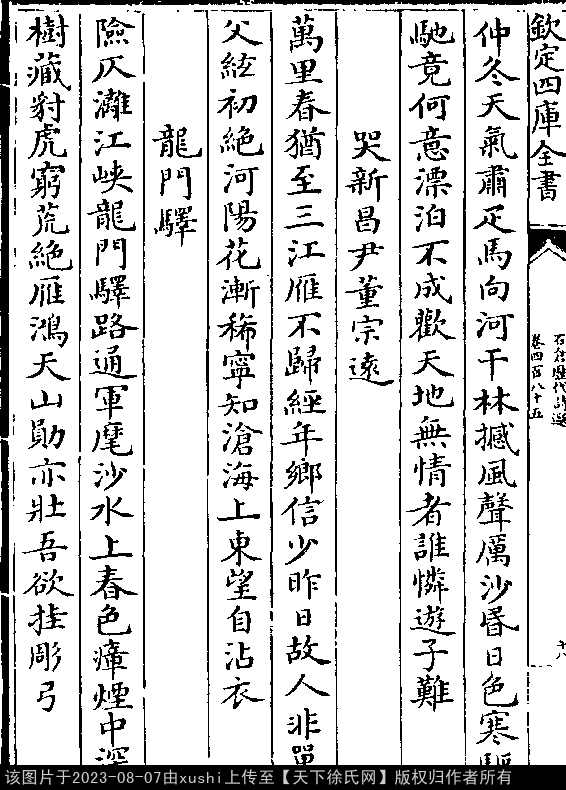 欽定四庫全書
石倉歷代詩選
卷四百八十五
十八
仲冬天氣肅疋馬向河干林撼風聲厲沙昏日色寒驅
馳竟何意漂泊不成歡天地無情者誰憐遊子難
哭新昌尹董宗遠
萬里春猶至三江雁不歸經年鄉信少昨日故人非單
父絃初絶河陽花漸稀寧知滄海上東望自沾衣
龍門驛
險仄灘江峽龍門驛路通軍麾沙水上春色瘴煙中深
樹藏豺虎窮荒絶雁鴻天山勛亦壯吾欲挂彫弓
该图片于2023-08-07由xushi上传至【天下徐氏网】版权归作者所有